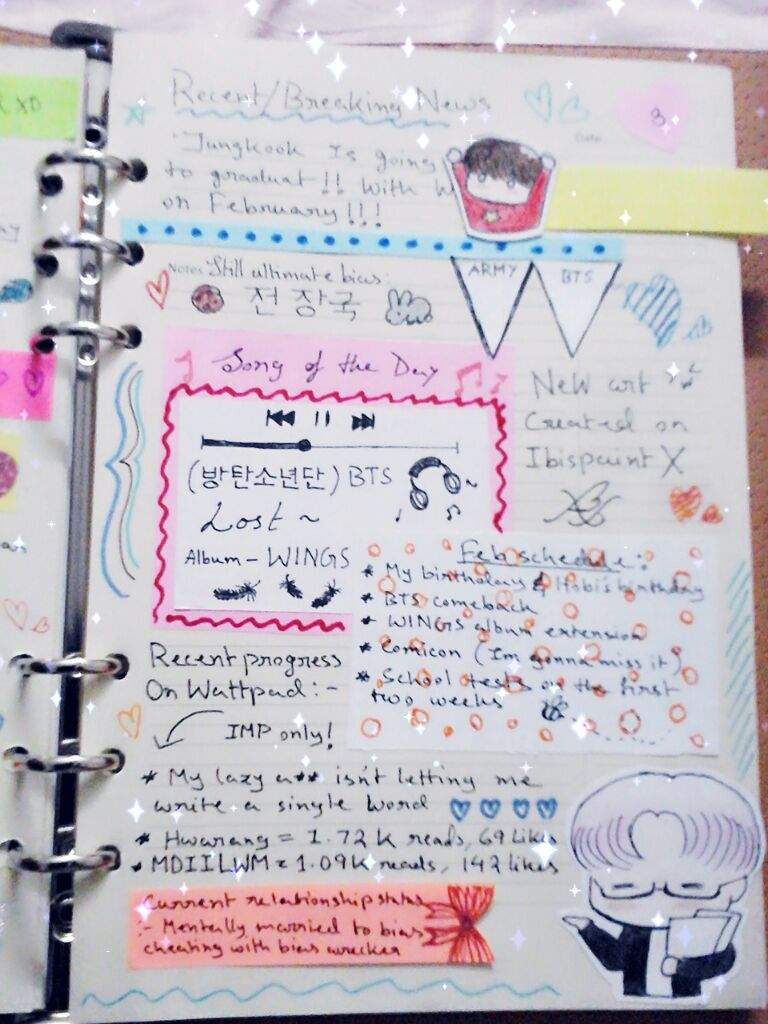 Recent/Breaking News
3
Jungkook Is going
to graduat!! With
on February!!!
Notes Still ultimate bias:
전장국
ARMY
BTS
Song of the Day
(방탄소년단) BTS
Lost ~
Album - WINGS
New art
Created on
Ibispaint X
Feb schedule:
* My birthday & Hobi's birthday
* BTS comeback
* WINGS album extension
* Comicon (Im gonna miss it)
* School tests on the first
two weeks
Recent progress
On Wattpad:-
IMP only!
* My lazy a** isn't letting me
write a single word
* Hwarang = 1.72K reads, 69 likes
* MDIILWM = 1.09K reads, 142 likes
Current relationship status
:- Mentally married to bias
cheating with bias wrecker
XD